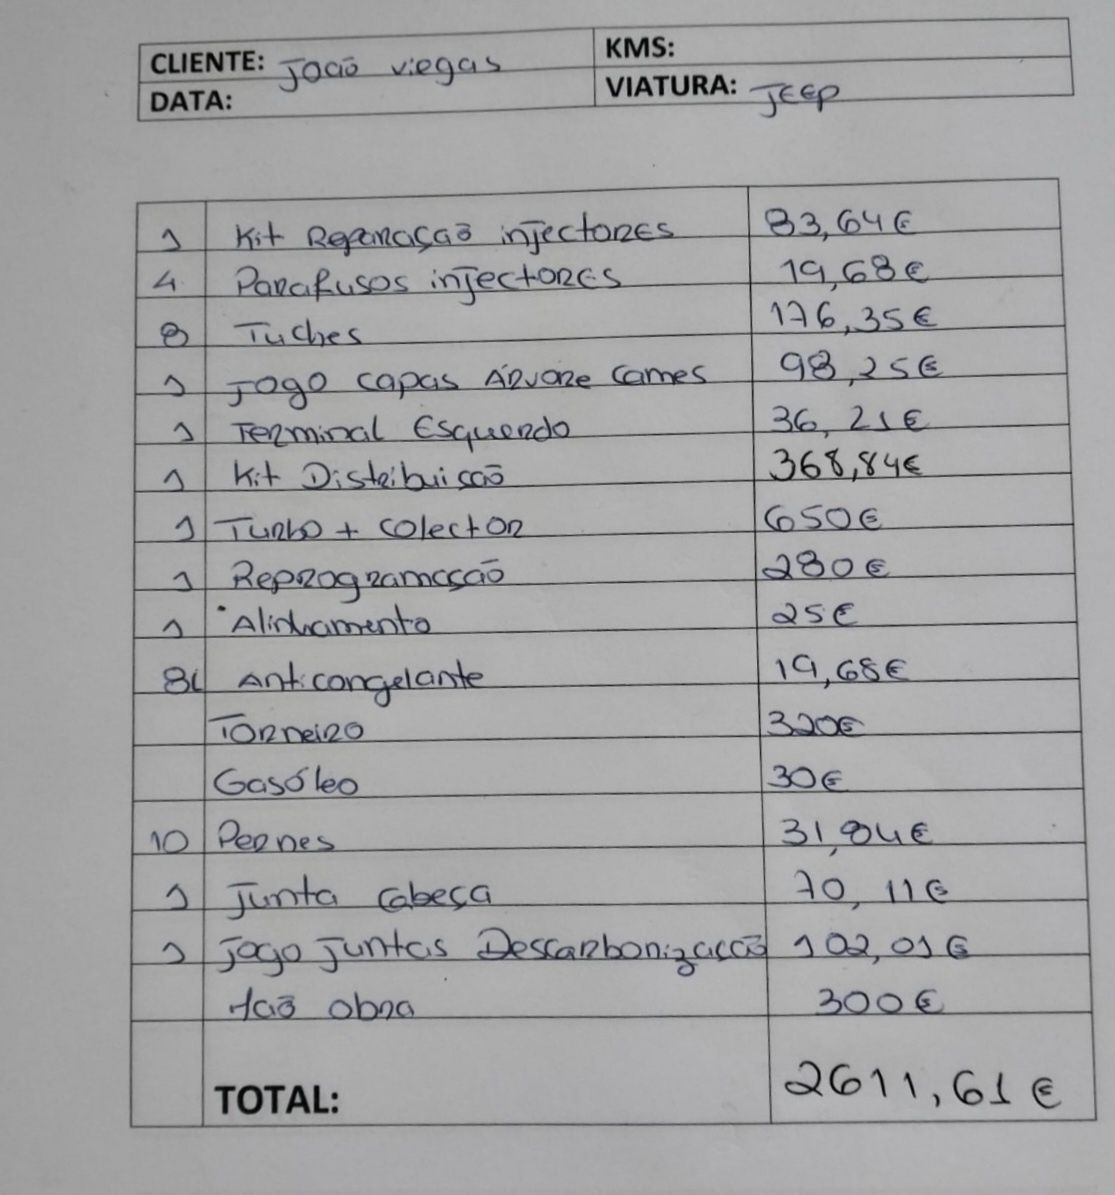 CLIENTE: João Viegas KMS:
DATA: VIATURA: JEEP
1 Kit Reparação injectores 83,64€
4 Parafusos injectores 19,68€
8 Tuches 176,35€
1 Jogo capas Árvore Cames 98,25€
1 Terminal Esquerdo 36,21€
1 Kit Distribuição 368,84€
1 Turbo + colector 650€
1 Reprogramação 280€
1 Alinhamento 25€
8L Anticongelante 19,68€
Torneiro 320€
Gasóleo 30€
10 Pernes 31,84€
1 Junta Cabeça 70,11€
1 Jogo Juntas Descarbonização 102,01€
Mão obra 300€
TOTAL: 2611,61€